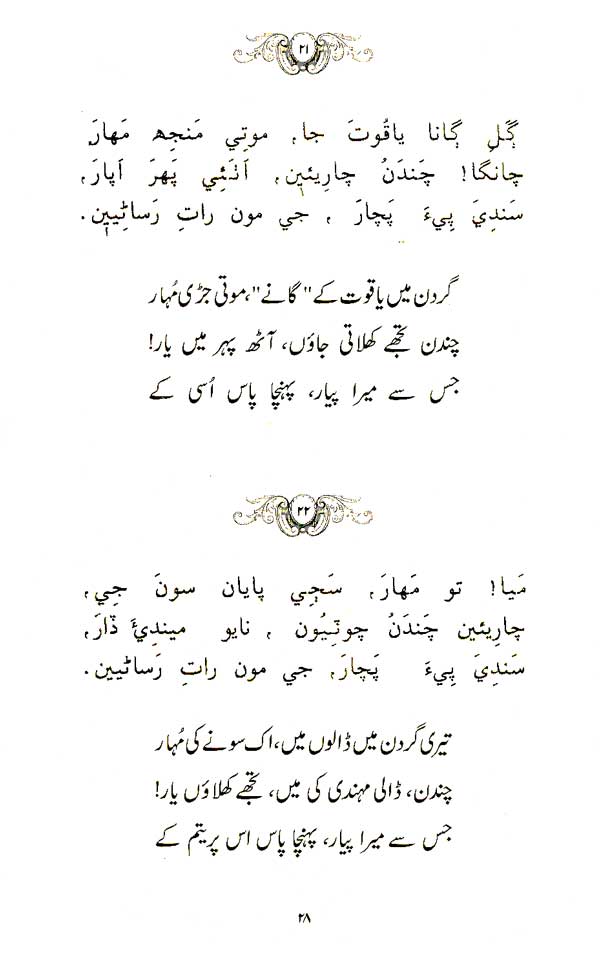 ۲۱
ڳَلِ ڳانا ياقُوتَ جا، موتي مَنجِهہ مَهارَ،
چانگا! چَندَنُ چاريئين، اَٺَئِي پَهرَ اَپارَ،
سَندِيَ پِيءَ پَچارَ ، جي مون راتِ رَساڻِيين.
گردن میں یاقوت کے "گانے"، موتی جڑی مُہار
چندن تجھے کھلاتی جاؤں، آٹھ پہر میں یار!
جس سے میرا پیار، پہنچا پاس اُسی کے
۲۲
مَيا! تو مَهارَ، سَڄِي پايان سونَ جِي،
چارِيئين چَندَنُ چوٽِيُون ، نايو ميندِيءَ ڏارَ،
سَندِيَ پِيءَ پَچارَ، جي مون راتِ رَساڻيين.
تیری گردن میں ڈالوں میں، اک سونے کی مُہار
چندن، ڈالی مہندی کی میں، تجھے کھلاؤں یار!
جس سے میرا پیار، پہنچا پاس اس پریتم کے
۲۸